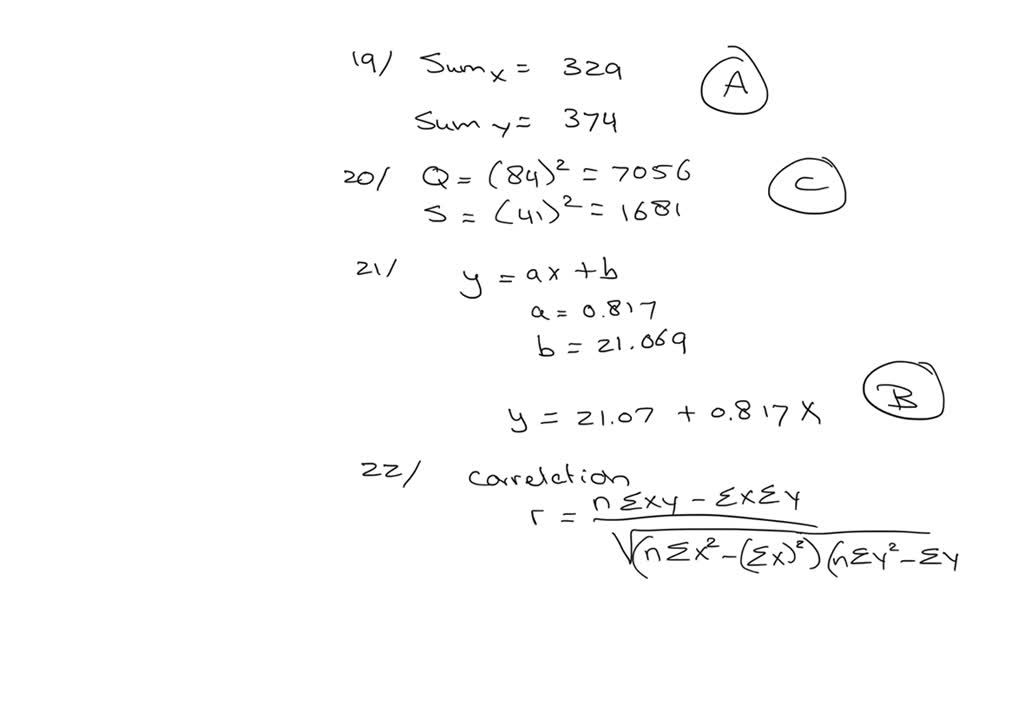 19/ Sum x = 329
A
Sum y = 374
20/ Q = (84)² = 7056
C
S = (41)² = 1681
21/ y = ax + b
a = 0.817
b = 21.069
y = 21.07 + 0.817 X
B
22/ Correlation
r = n Σxy - ΣxΣy
√(nΣx² - (Σx)²) (nΣy² - Σy